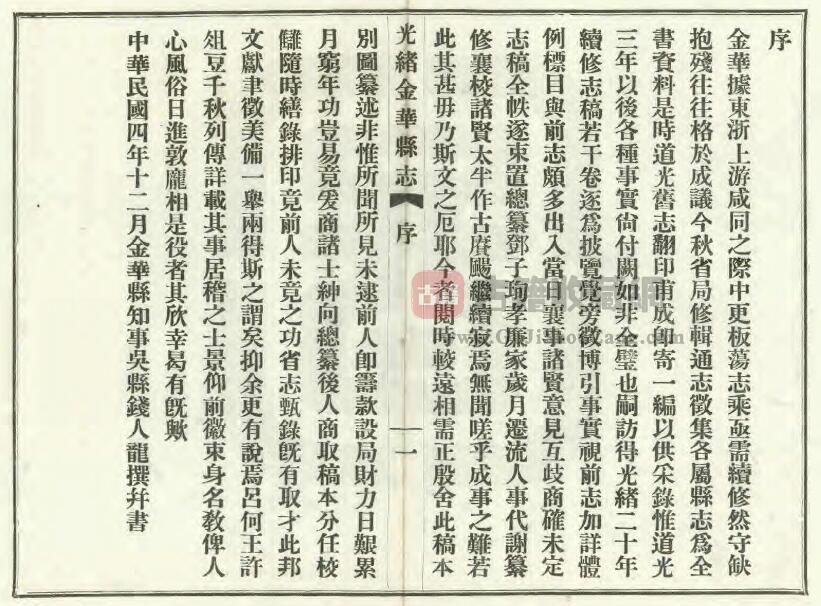 序
金華據東浙上游咸同之際中更板蕩志乘亟需續修然守缺
抱殘往往格於成議今秋省局修輯通志徵集各屬縣志爲全
書資料是時道光舊志翻印甫成卽寄一編以供采錄惟道光
三年以後各種事實尙付闕如非全璧也嗣訪得光緒二十年
續修志稿若干卷逐爲披覽覺旁徵博引事實視前志加詳體
例標目與前志頗多出入當日襄事諸賢意見互歧商確未定
志稿全帙遂束置總纂鄧子珣孝廉家歲月遷流人事代謝纂
修襄校諸賢太半作古賡颺繼續寂焉無聞嗟乎成事之難若
此其甚毋乃斯文之厄耶今者閱時較遠相需正殷舍此稿本
光緒金華縣志 序 一
別圖纂述非惟所聞所見未逮前人卽籌款設局財力日艱累
月窮年功豈易竟爰商諸士紳向總纂後人商取稿本分任校
讎隨時繕錄排印竟前人未竟之功省志甄錄旣有取才此邦
文獻聿徵美備一舉兩得斯之謂矣抑余更有說焉呂何王許
俎豆千秋列傳詳載其事居稽之士景仰前徽束身名敎俾人
心風俗日進敦龐相是役者其欣幸曷有旣歟
中華民國四年十二月金華縣知事吳縣錢人龍撰幷書